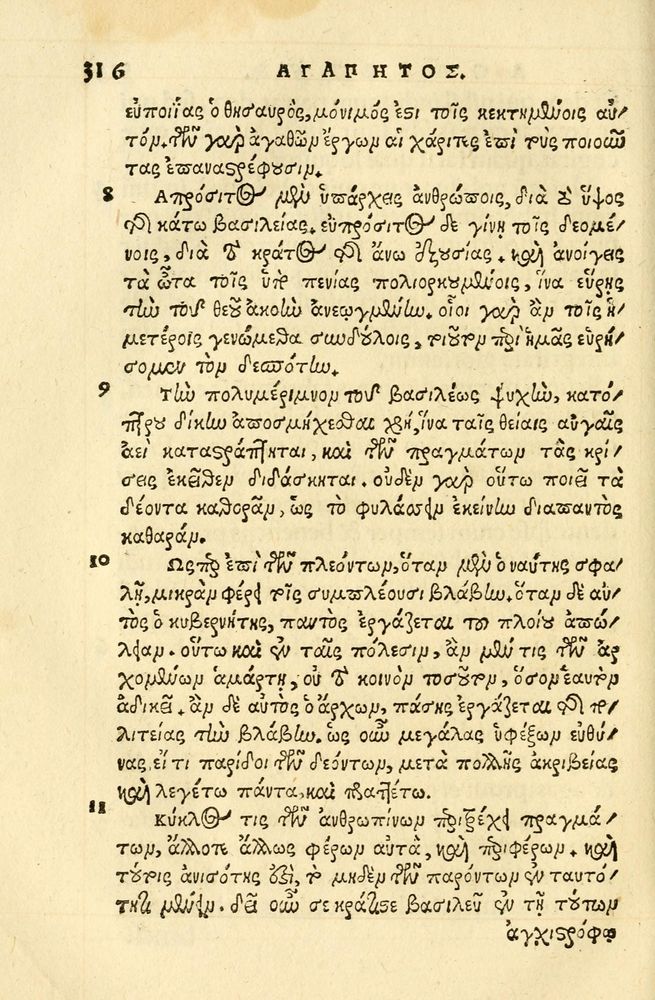 316 ΑΓΑΠΗΤΟΣ.
εὐποιΐας ὁ θησαυρὸς, μόνιμός ἐστι τοῖς κεκτημένοις αὐ-
τόν. τῶν γὰρ ἀγαθῶν ἔργων αἱ χάριτες ἐπὶ τοὺς ποιοῦν
τας ἐπαναστρέφουσιν.
8 Απρόσιτος μὲν ὑπάρχεις ἀνθρώποις, διὰ τὸ ὕψος
τῆς κάτω βασιλείας. εὐπρόσιτος δὲ γίνῃ τοῖς δεομέ-
νοις, διὰ τὸ κράτος τῆς ἄνω ἐξουσίας. καὶ ἀνοίγεις
τὰ ὦτα τοῖς ὑπὸ πενίας πολιορκουμένοις, ἵνα εὕρῃς
τὴν τοῦ θεοῦ ἀκοὴν ἀνεῳγμένην. οἷοι γὰρ ἂν τοῖς ἡ-
μετέροις γενώμεθα συνδούλοις, τοιοῦτον περὶ ἡμᾶς εὑρή-
σομεν τὸν δεσπότην.
9 Τὴν πολυμέριμνον τοῦ βασιλέως ψυχὴν, κατό-
πτρου δίκην ἀποσμήχεσθαι χρὴ, ἵνα ταῖς θείαις αὐγαῖς
ἀεὶ καταστράπτηται, καὶ τῶν πραγμάτων τὰς κρί-
σεις ἐκεῖθεν διδάσκηται. οὐδὲν γὰρ οὕτω ποιεῖ τὰ
δέοντα καθορᾶν, ὡς τὸ φυλάσσειν ἐκείνην διαπαντὸς
καθαράν.
10 Ωσπερ ἐπὶ τῶν πλεόντων, ὅταν μὲν ὁ ναύτης σφα-
λῇ, μικρὰν φέρει τοῖς συμπλέουσι βλάβην. ὅταν δὲ αὐ-
τὸς ὁ κυβερνήτης, παντὸς ἐργάζεται τοῦ πλοίου ἀπώ-
λειαν. οὕτω καὶ ἐν ταῖς πόλεσιν, ἂν μέν τις τῶν ἀρ
χομένων ἁμάρτῃ, οὐ τὸ κοινὸν τοσοῦτον, ὅσον ἑαυτὸν
ἀδικεῖ. ἂν δὲ αὐτὸς ὁ ἄρχων, πάσης ἐργάζεται τῆς πο-
λιτείας τὴν βλάβην. ὡς οὖν μεγάλας ὑφέξων εὐθύ-
νας, εἴ τι παρίδοι τῶν δεόντων, μετὰ πολλῆς ἀκριβείας
καὶ λεγέτω πάντα, καὶ πραττέτω.
11 Κύκλος τις τῶν ἀνθρωπίνων περιτρέχει πραγμά-
των, ἄλλοτε ἄλλως φέρων αὐτὰ, καὶ περιφέρων. καὶ
τούτοις ἀνισότης ἐστὶ, τὸ μηδὲν τῶν παρόντων ἐν ταυτό-
τητι μένειν. δεῖ οὖν σε κράτιστε βασιλεῦ ἐν τῇ τούτων
ἀγχιστρόφῳ